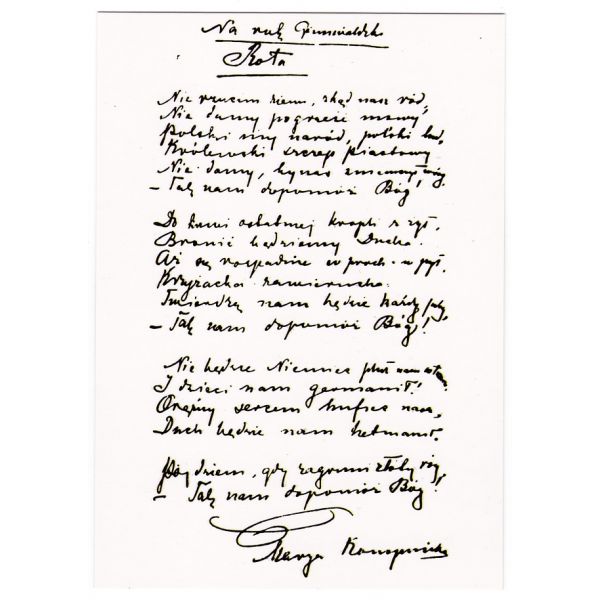 Na rok Grunwaldzki
Rota
Nie rzucim ziemi, skąd nasz ród,
Nie damy pogrześć mowy!
Polski my naród, polski lud,
Królewski szczep Piastowy
Nie damy, by nas zniemczył wróg
– Tak nam dopomóż Bóg!
Do krwi ostatniej kropli z żył,
Bronić będziemy Ducha.
Aż się rozpadnie w proch i w pył,
Krzyżacka zawierucha.
Twierdzą nam będzie każdy próg,
– Tak nam dopomóż Bóg!
Nie będzie Niemiec pluł nam w twarz
I dzieci nam germanił.
Orężny sercem hufiec nasz,
Duch będzie nam hetmanił.
Pójdziem, gdy zagrzmi złoty róg,
– Tak nam dopomóż Bóg!
Marya Konopnicka